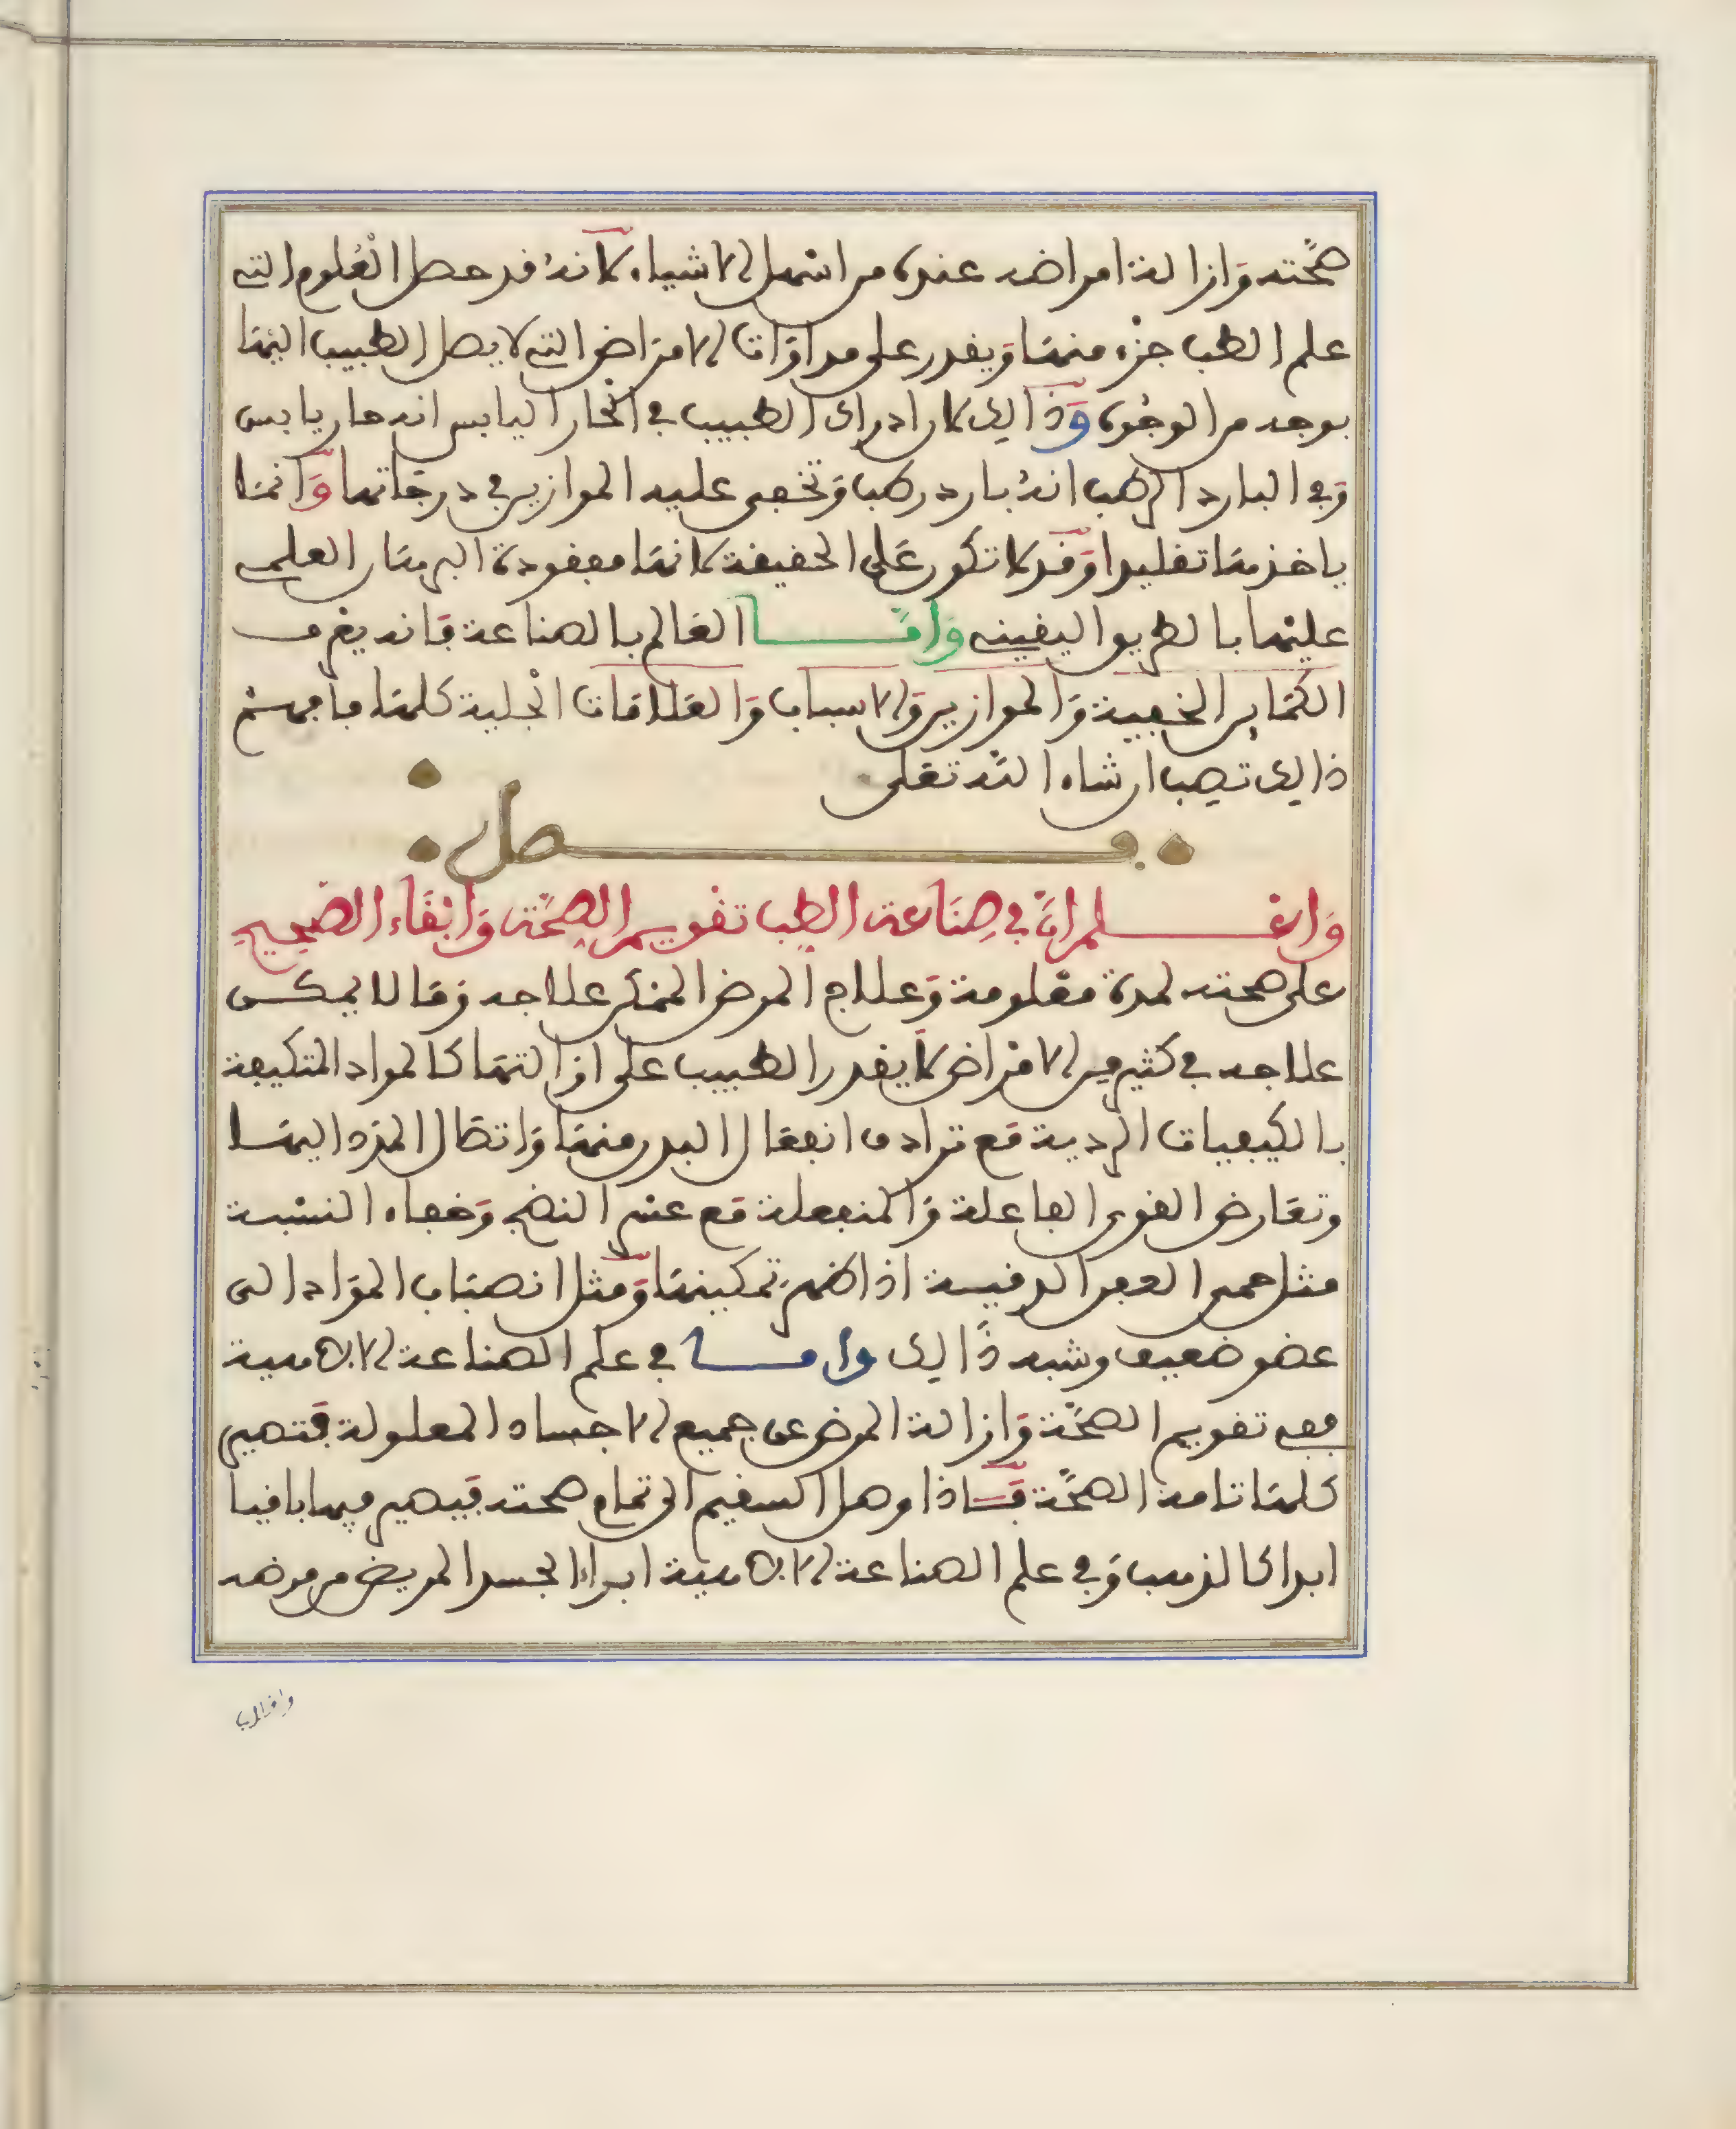 صحته وازالة امراضه عنده من اسهل الاشياء لانه قد حصل العلوم التي
علم الطب جزء منها ويقدر على مداوات الامراض التي لا يصل الطبيب اليها
بوجه من الوجوه وذالك لان ادراك الطبيب في الحار اليابس انه حار يابس
وفي البارد الرطب انه بارد رطب وتخفى عليه الموازين في درجاتها وانما
ياخذها تقليدا وقد لا تكون على الحقيقة لانها مفقودة البرهان العلمي
عليها بالطريق اليقيني واما العالم بالصناعة فانه يعرف
الكماين الخفية والموازين والاسباب والعلامات الجلية كلها فافهم
ذالك تصب ان شاء الله تعلى
فصل
واعلم ان في صناعة الطب تقويم الصحة وابقاء الصحيح
على صحته لمدة معلومة وعلاج المرض الممكن علاجه وما لا يمكن
علاجه في كثير من الامراض لا يقدر الطبيب على ازالتها كالمواد المتكيفة
بالكيفيات الردية مع ترادف انفعال البدن منها واتصال المدد اليها
وتعارض القوى الفاعلة والمنفعلة مع عسر النضج وخفاء النسبة
مثل حمى العفن الدقيسة اذا ظهر تمكينها ومثل انصباب المواد الى
عضو ضعيف وشبه ذالك واما في علم الصناعة الالاهية
ففي تقويم الصحة وازالة المرض عن جميع الاجساد المعلولة فتصير
كلها تامة الصحة فاذا وصل السقيم الى تمام صحته فيصير فيها باقيا
ابدا كالذهب وفي علم الصناعة الالاهية ابراء الجسد المريض من مرضه